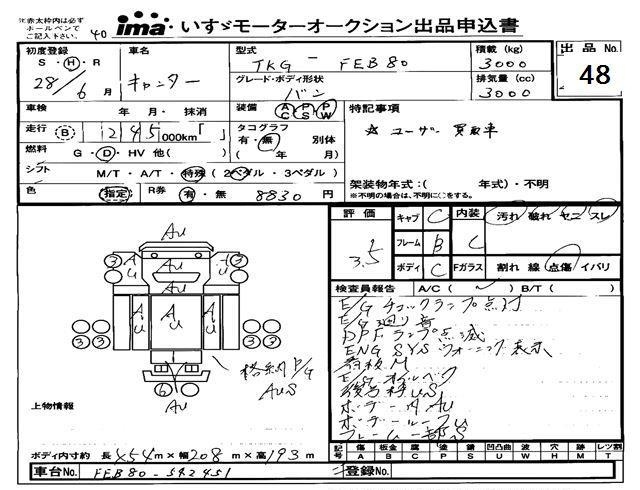 ※赤太枠内は必ず
ボールペンで
ご記入下さい。
40
ima いすゞモーターオークション出品申込書
初度登録 車名 型式 TKG - FEB80 積載(kg) 3000
S・H・R 28/6月 キャンター グレード・ボディ形状 バン 排気量(cc) 3000
出品No. 48
車検 年 月・抹消 装備 AC PS PW 特記事項
走行 B 1245 000km「 」 タコグラフ 有・無 別体 ☆ユーザー買取車
燃料 G・D・HV 他( ) ( 年 月)
シフト M/T・A/T・特殊(2ペダル・3ペダル) 架装物年式:( 年式)・不明
※不明の場合は、不明に○をする。
色 指定 R券 有・無 8830円
評価 3.5 キャブ C 内装 C 汚れ 破れ ヤニ スレ
フレーム B
ボディ C Fガラス 割れ 線 点傷 イバリ
検査員報告 A/C( ) B/T( )
E/G チェックランプ点灯
E/G 廻り音
DPFランプ点滅
ENG SYS ウォーニング表示
AU
AU
AU
AU
AU
AU
AU
3
3
3
3
3
3
6
格納P/G
AUS
上物情報
ボディ内AU
ボディ内寸約 長454m×幅208m×高193m
記号 傷 板金 腐 塗 補 凹凸曲 波 穴 跡 レツ割
A B C P S U W H M T
車台No. FEB80-542451 登録No.